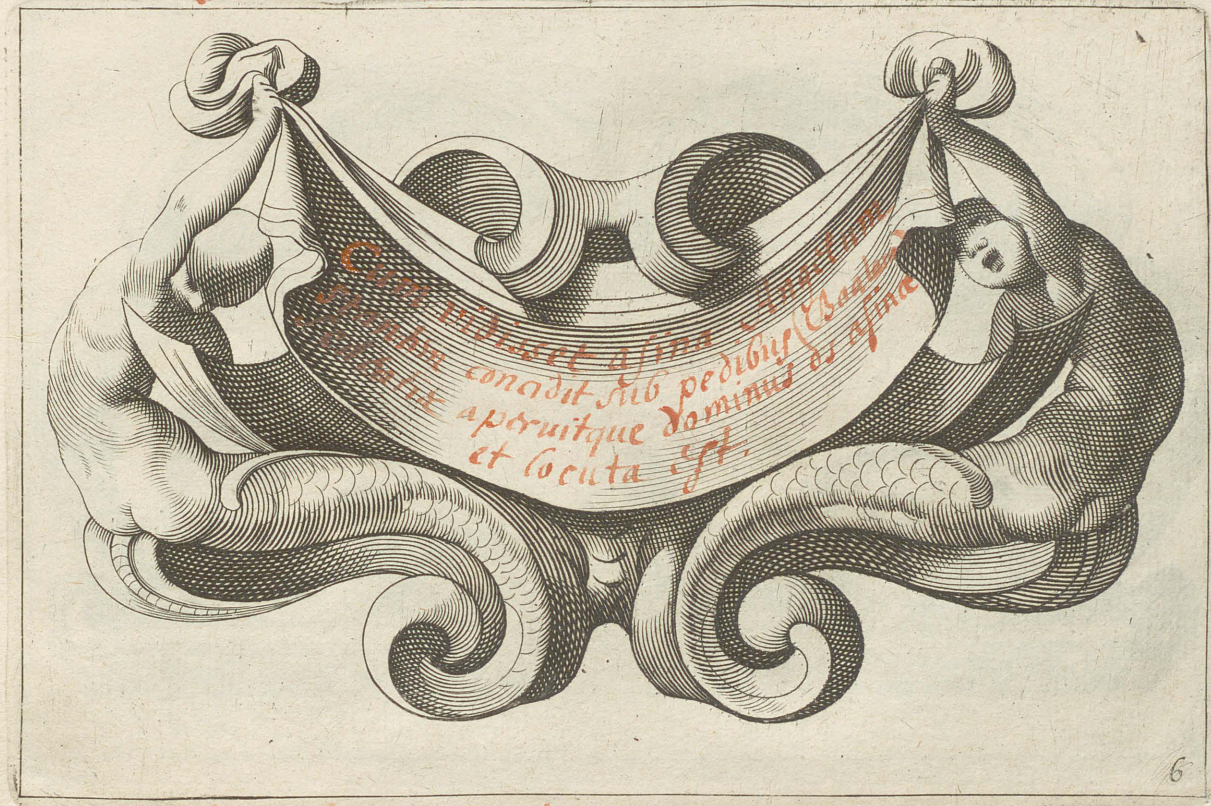 Cum vidisset asina Angelum
Stantem concidit sub pedibus (Baalam)
aperuitque dominus os asinæ
et locuta est.
6